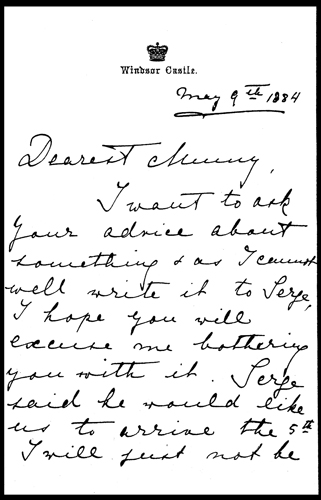 Windsor Castle.
May 9th 1884
Dearest Munny,
I want to ask
your advice about
something & as I cannot
well write it to Serge,
I hope you will
excuse me bothering
you with it. Serge
said he would like
us to arrive the 5th
I will just not be